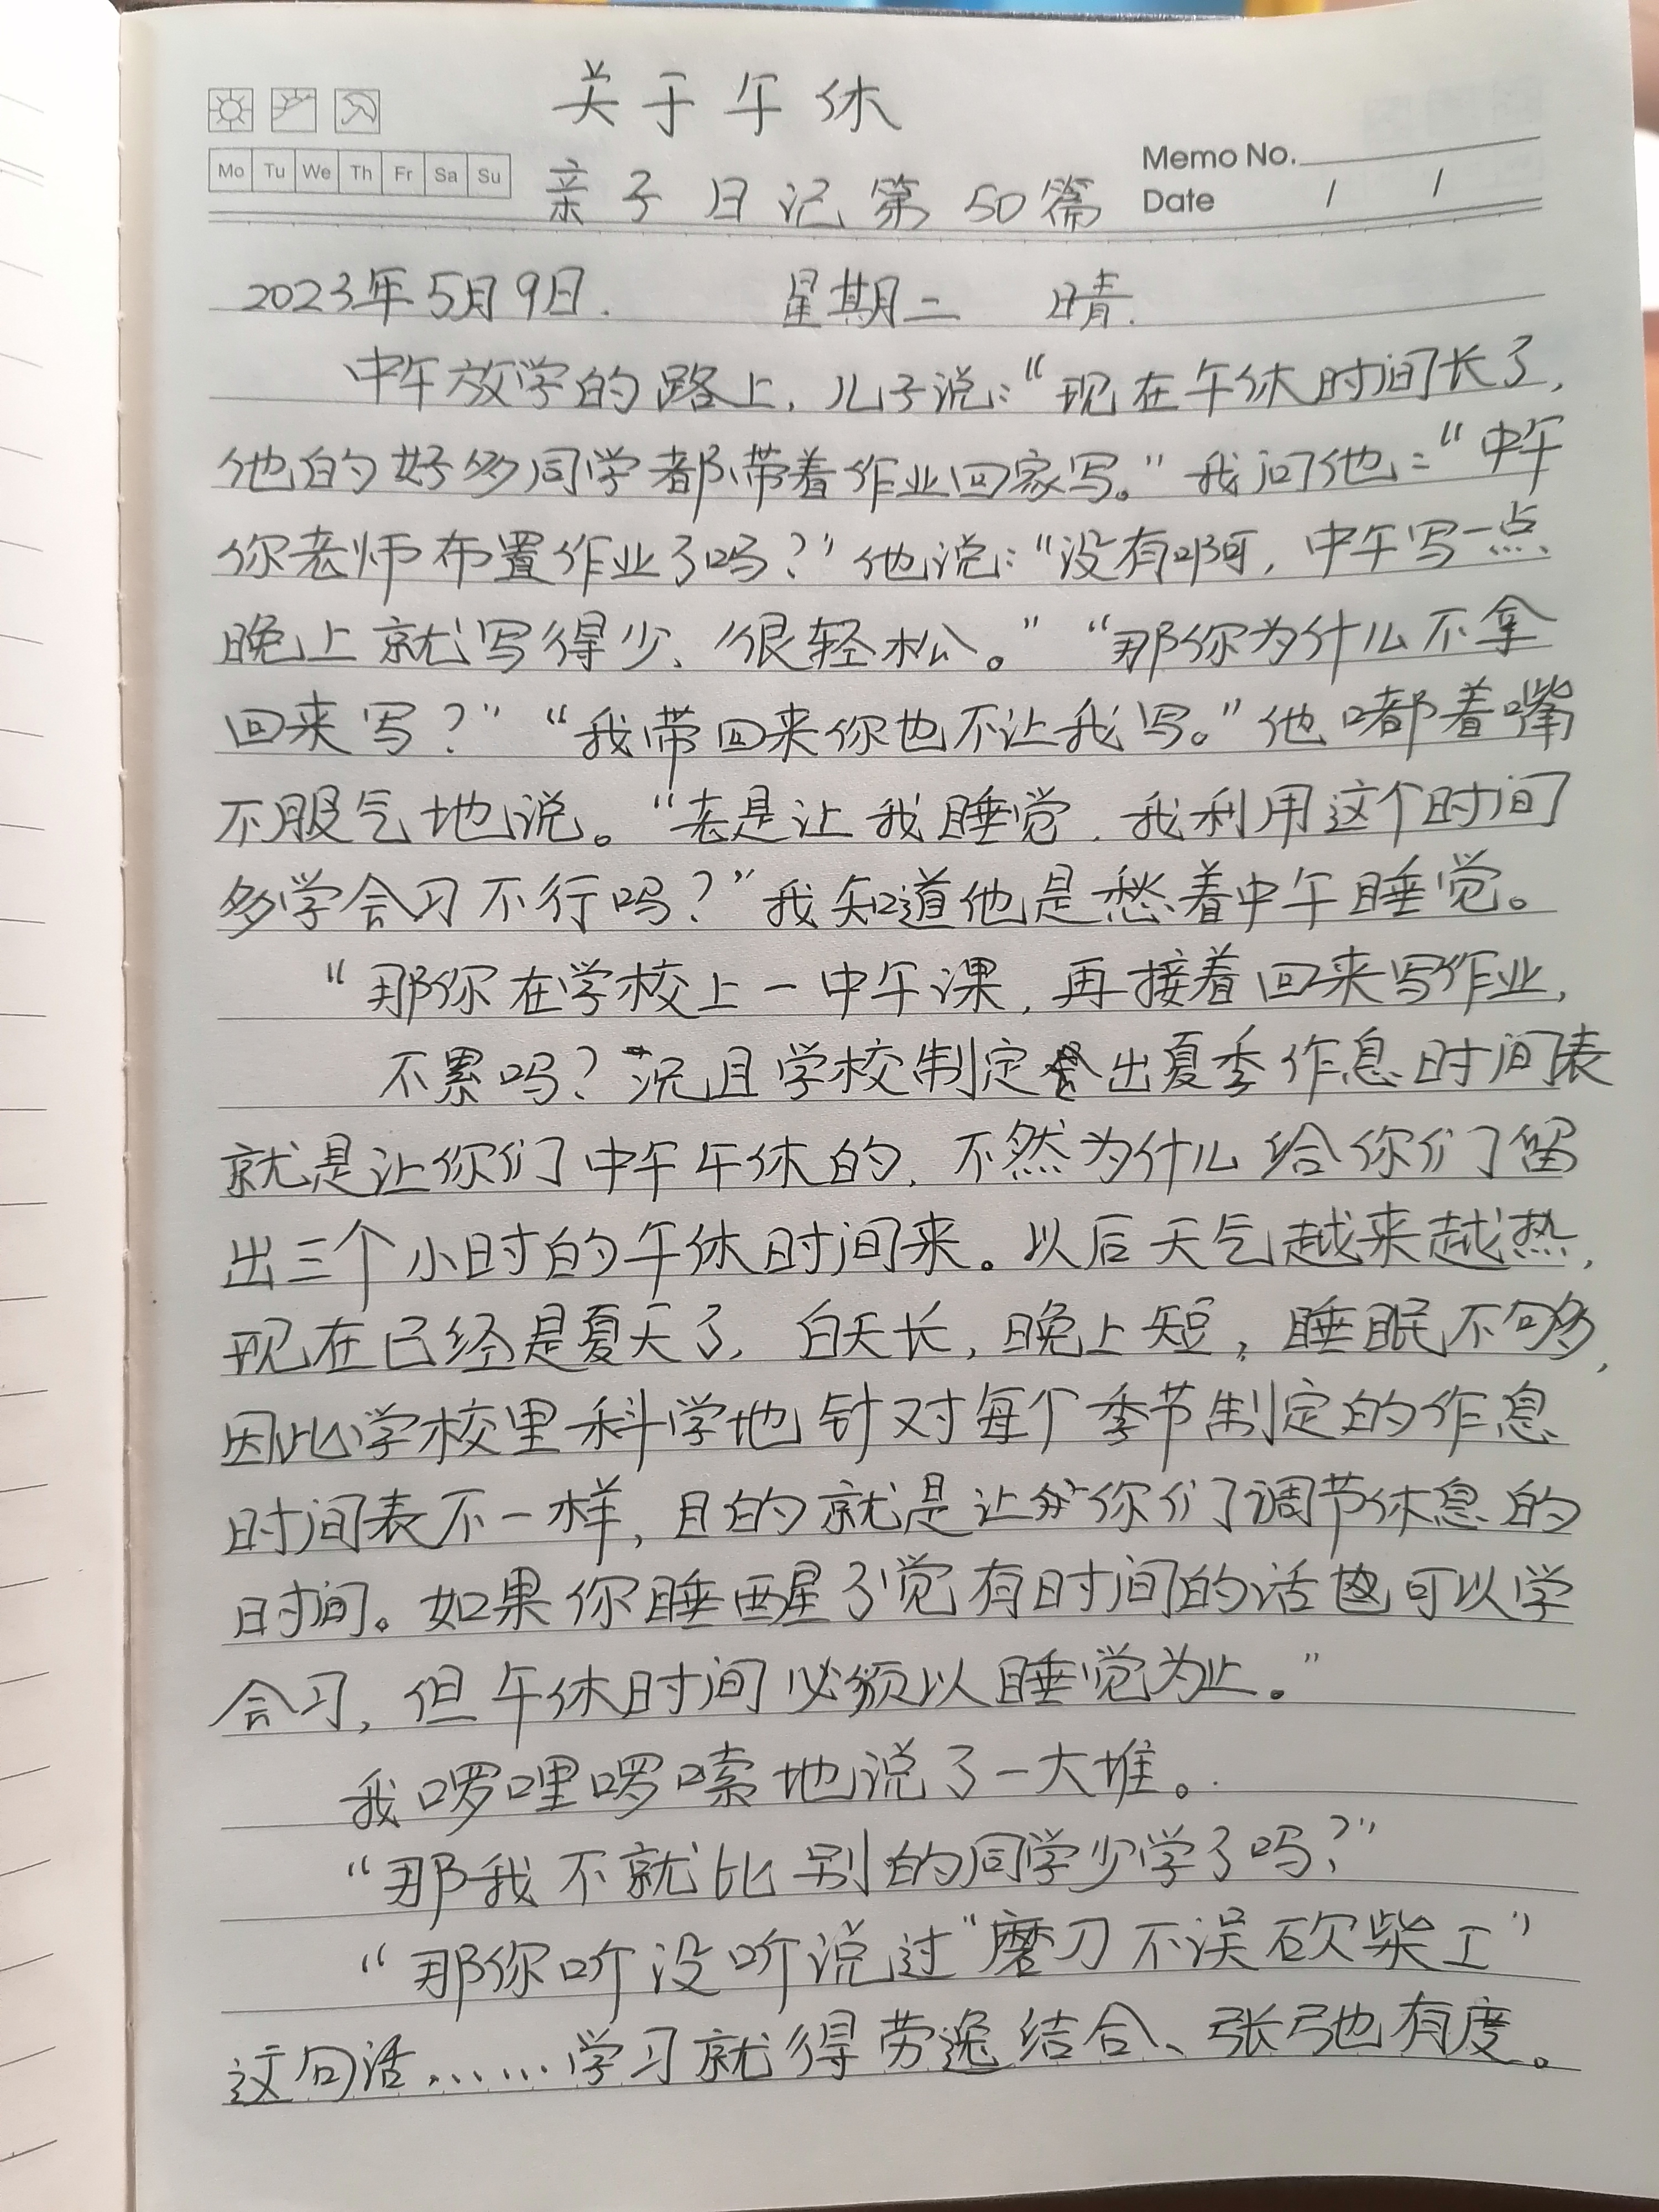 关于午休
Mo Tu We Th Fr Sa Su
Memo No.
亲子日记第50篇
Date / /
2023年5月9日. 星期二 晴.
中午放学的路上，儿子说：“现在午休时间长了，
他的好多同学都带着作业回家写。”我问他：“中午
你老师布置作业了吗？”他说：“没有啊，中午写一点、
晚上就写得少、很轻松。”“那你为什么不拿
回来写？”“我带回来你也不让我写。”他嘟着嘴
不服气地说。“老是让我睡觉，我利用这个时间
多学会习不行吗？”我知道他是愁着中午睡觉。
“那你在学校上一中午课，再接着回来写作业，
不累吗？况且学校制定出夏季作息时间表
就是让你们中午午休的，不然为什么给你们留
出三个小时的午休时间来。以后天气越来越热，
现在已经是夏天了，白天长，晚上短，睡眠不够，
因此学校里科学地针对每个季节制定的作息
时间表不一样，目的就是让你们调节休息的
时间。如果你睡醒了觉有时间的话也可以学
会习，但午休时间必须以睡觉为止。”
我啰哩啰嗦地说了一大堆。
“那我不就比别的同学少学了吗？”
“那你听没听说过“磨刀不误砍柴工”
这句话……学习就得劳逸结合、张弛有度。